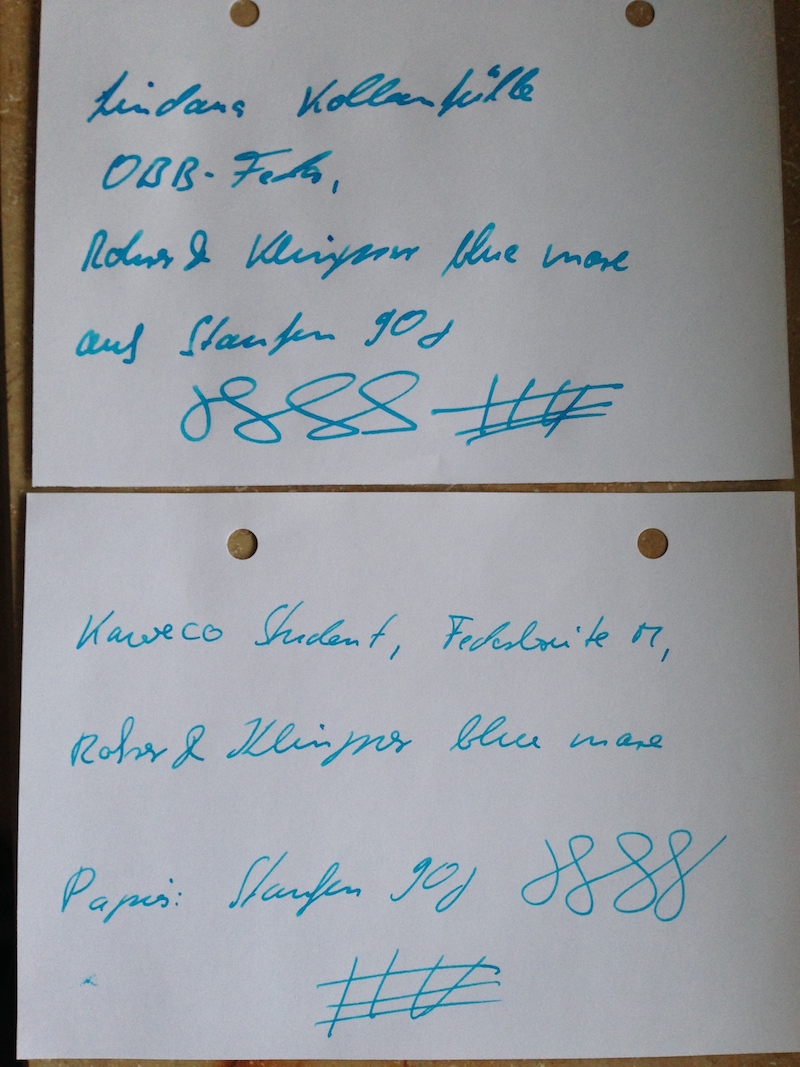 Lindauer Kolbenfüller
OBB-Feder,
Rohrer & Klingner blue mare
auf Staufen 90g
Kaweco Student, Federbreite M,
Rohrer & Klingner blue mare
Papier: Staufen 90g